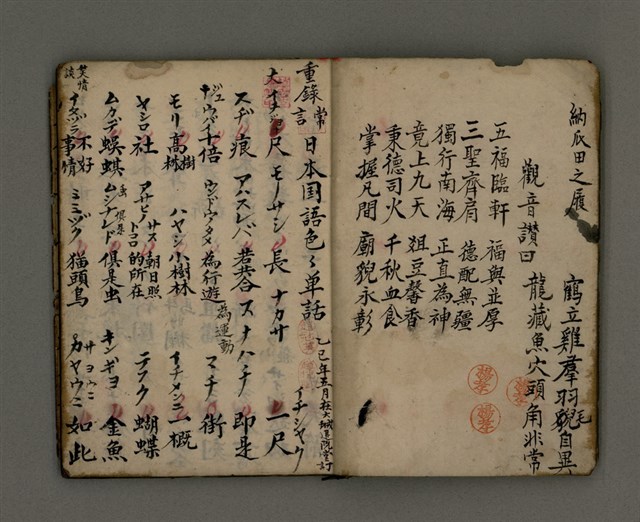 納瓜田之履
鶴立雞羣羽貎自異
毛
觀音讃曰
龍藏魚穴頭角非常
五福臨軒 福與並厚
三聖齊肩 德配無疆
獨行南海 正直為神
竟上九天 俎豆馨香
秉德司火 千秋血食
掌握凡間 廟貎永彰
重錄 常言 日本国語色々单話
乙巳年五月在大
尺 モノサシ 長 ナカサ 一尺 イチシヤウ
スヂ 痕 アハスレバ 若合 スナハチ 即是
倍 ウンドウノタメ 為行遊 為運動 マチ 街
モリ 高樹林 ハヤシ 小樹林 イチメンニ 一概
ヤシロ 社 アサヒノサス トコロ 朝日照的所在 テフ 蝴蝶
ムカデ 蜈蜞 ムシナレド 俱是虫 キンギヨ 金魚
イタヅラ 不好事情 ミミヅク 猫頭鳥 サヨウニ カヤウニ 如此
笑情談